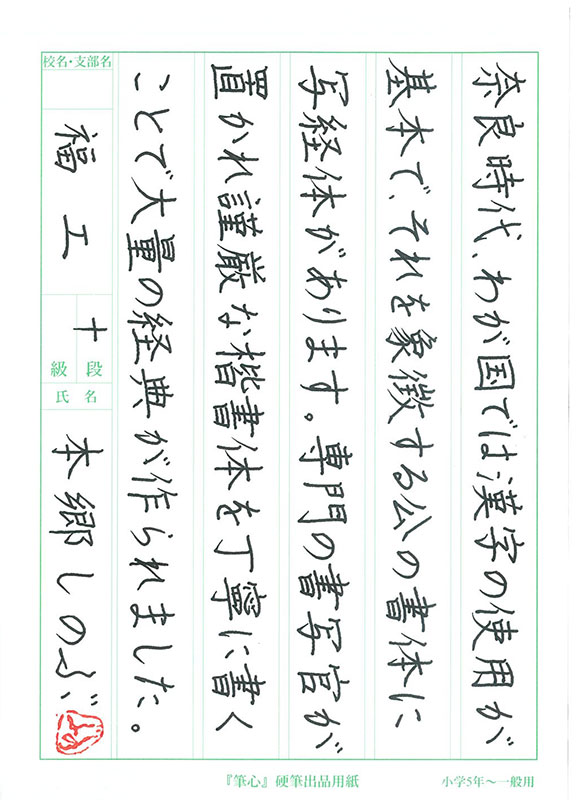 奈良時代、わが国では漢字の使用が
基本で、それを象徴する公の書体に
写経体があります。専門の書写官が
置かれ謹厳な楷書体を丁寧に書く
ことで大量の経典が作られました。
校名・支部名
福工
十
段
級
氏名
本郷しのぶ
『筆心』硬筆出品用紙
小学5年〜一般用